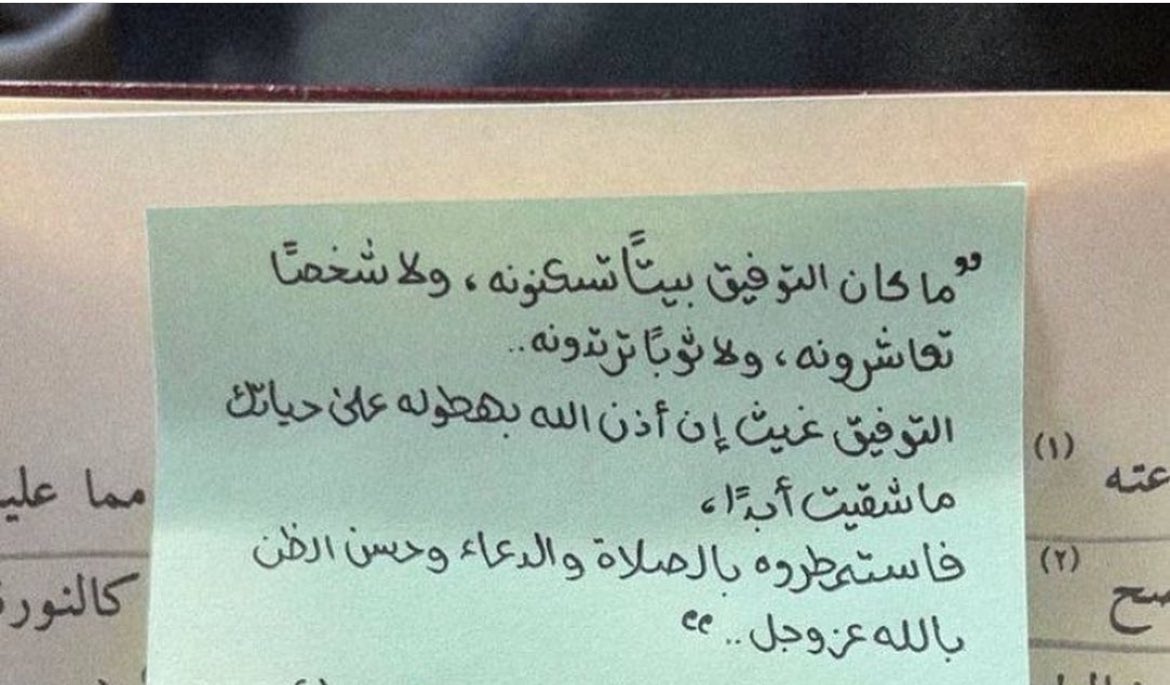 ”ما كان التوفيق بيتًا تسكنونه، ولا شخصًا
تعاشرونه، ولا ثوبًا ترتدونه..
التوفيق غيث إن أذن الله بهطوله على حياتك
ما شقيت أبدًا،
فاستمطروه بالصلاة والدعاء وحسن الظن
بالله عز وجل.. “
(١)
مما
(٢)